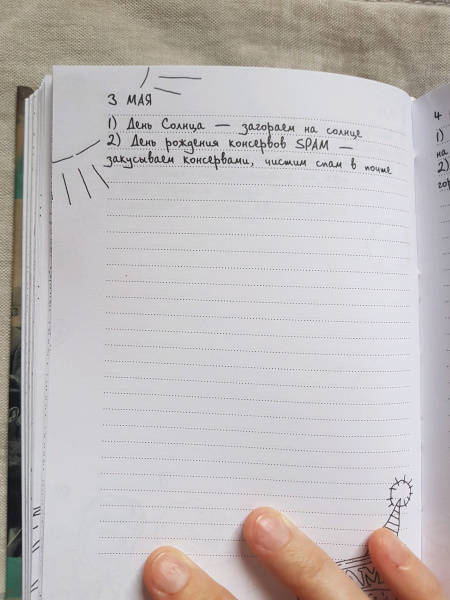 3 МАЯ
1) День Солнца — загораем на солнце
2) День рождения консервов SPAM —
закусываем консервами, чистим спам в почте
4
1)
на
2)